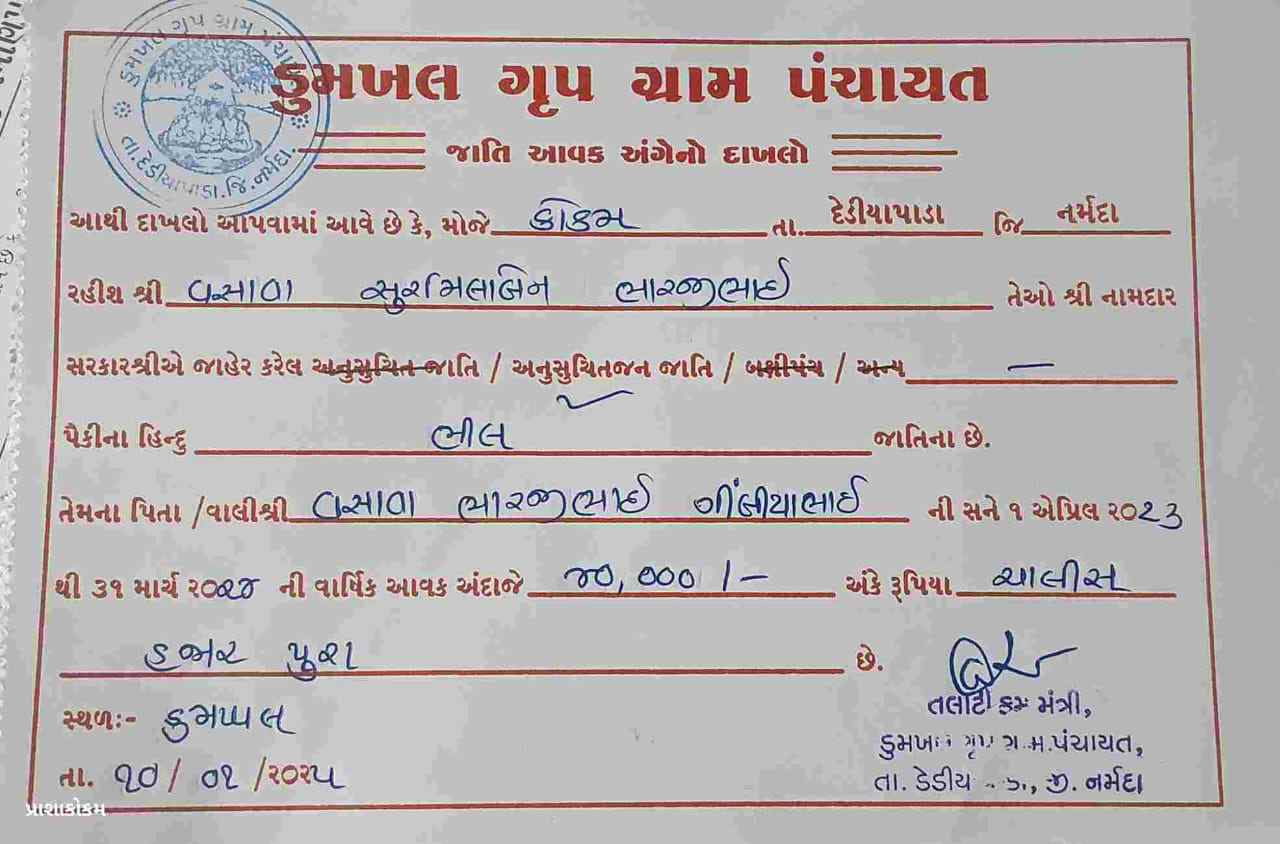 ડુમખલ ગૃપ ગ્રામ પંચાયત
ડુમખલ ગૃપ ગ્રામ પંચાયત
તા.દેડીયાપાડા.જિ.નર્મદા.
જાતિ આવક અંગેનો દાખલો
આથી દાખલો આપવામાં આવે છે કે, મોજે કોકમ તા. દેડીયાપાડા જિ નર્મદા
રહીશ શ્રી વસાવા સુરમિલાબેન ભારજીભાઈ તેઓ શ્રી નામદાર
સરકારશ્રીએ જાહેર કરેલ અનુસુચિત જાતિ / અનુસુચિતજન જાતિ / બક્ષીપંચ / અન્ય —
પૈકીના હિન્દુ ભીલ જાતિના છે.
તેમના પિતા /વાલીશ્રી વસાવા ભારજીભાઈ ગીંબીયાભાઈ ની સને ૧ એપ્રિલ ૨૦૨૩
થી ૩૧ માર્ચ ૨૦૨૪ ની વાર્ષિક આવક અંદાજે ૪૦,૦૦૦ /– અંકે રૂપિયા ચાલીસ
હજાર પુરા છે.
સ્થળ:- ડુમખલ
તલાટી કમ મંત્રી,
ડુમખલ ગૃપ ગ્રામ.પંચાયત,
તા. ૧૦/ ૦૧ /૨૦૨૫
તા. દેડીયાપાડા, જી. નર્મદા
પ્રાશાકોકમ